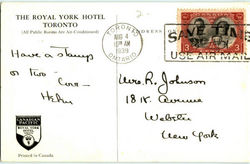 THE ROYAL YORK HOTEL
TORONTO
(All Public Rooms Are Air Conditioned)
Have a stamps
or two -
Helen
CANADIAN
PACIFIC
ROYAL YORK
Printed in Canada
TORONTO
AUG 4
PM
1939
ONTARIO
ADDRESS
SAVE TIME
USE AIR MAIL
3 3
Mrs. R. Johnson
18 K. Avenue
Webster
New York